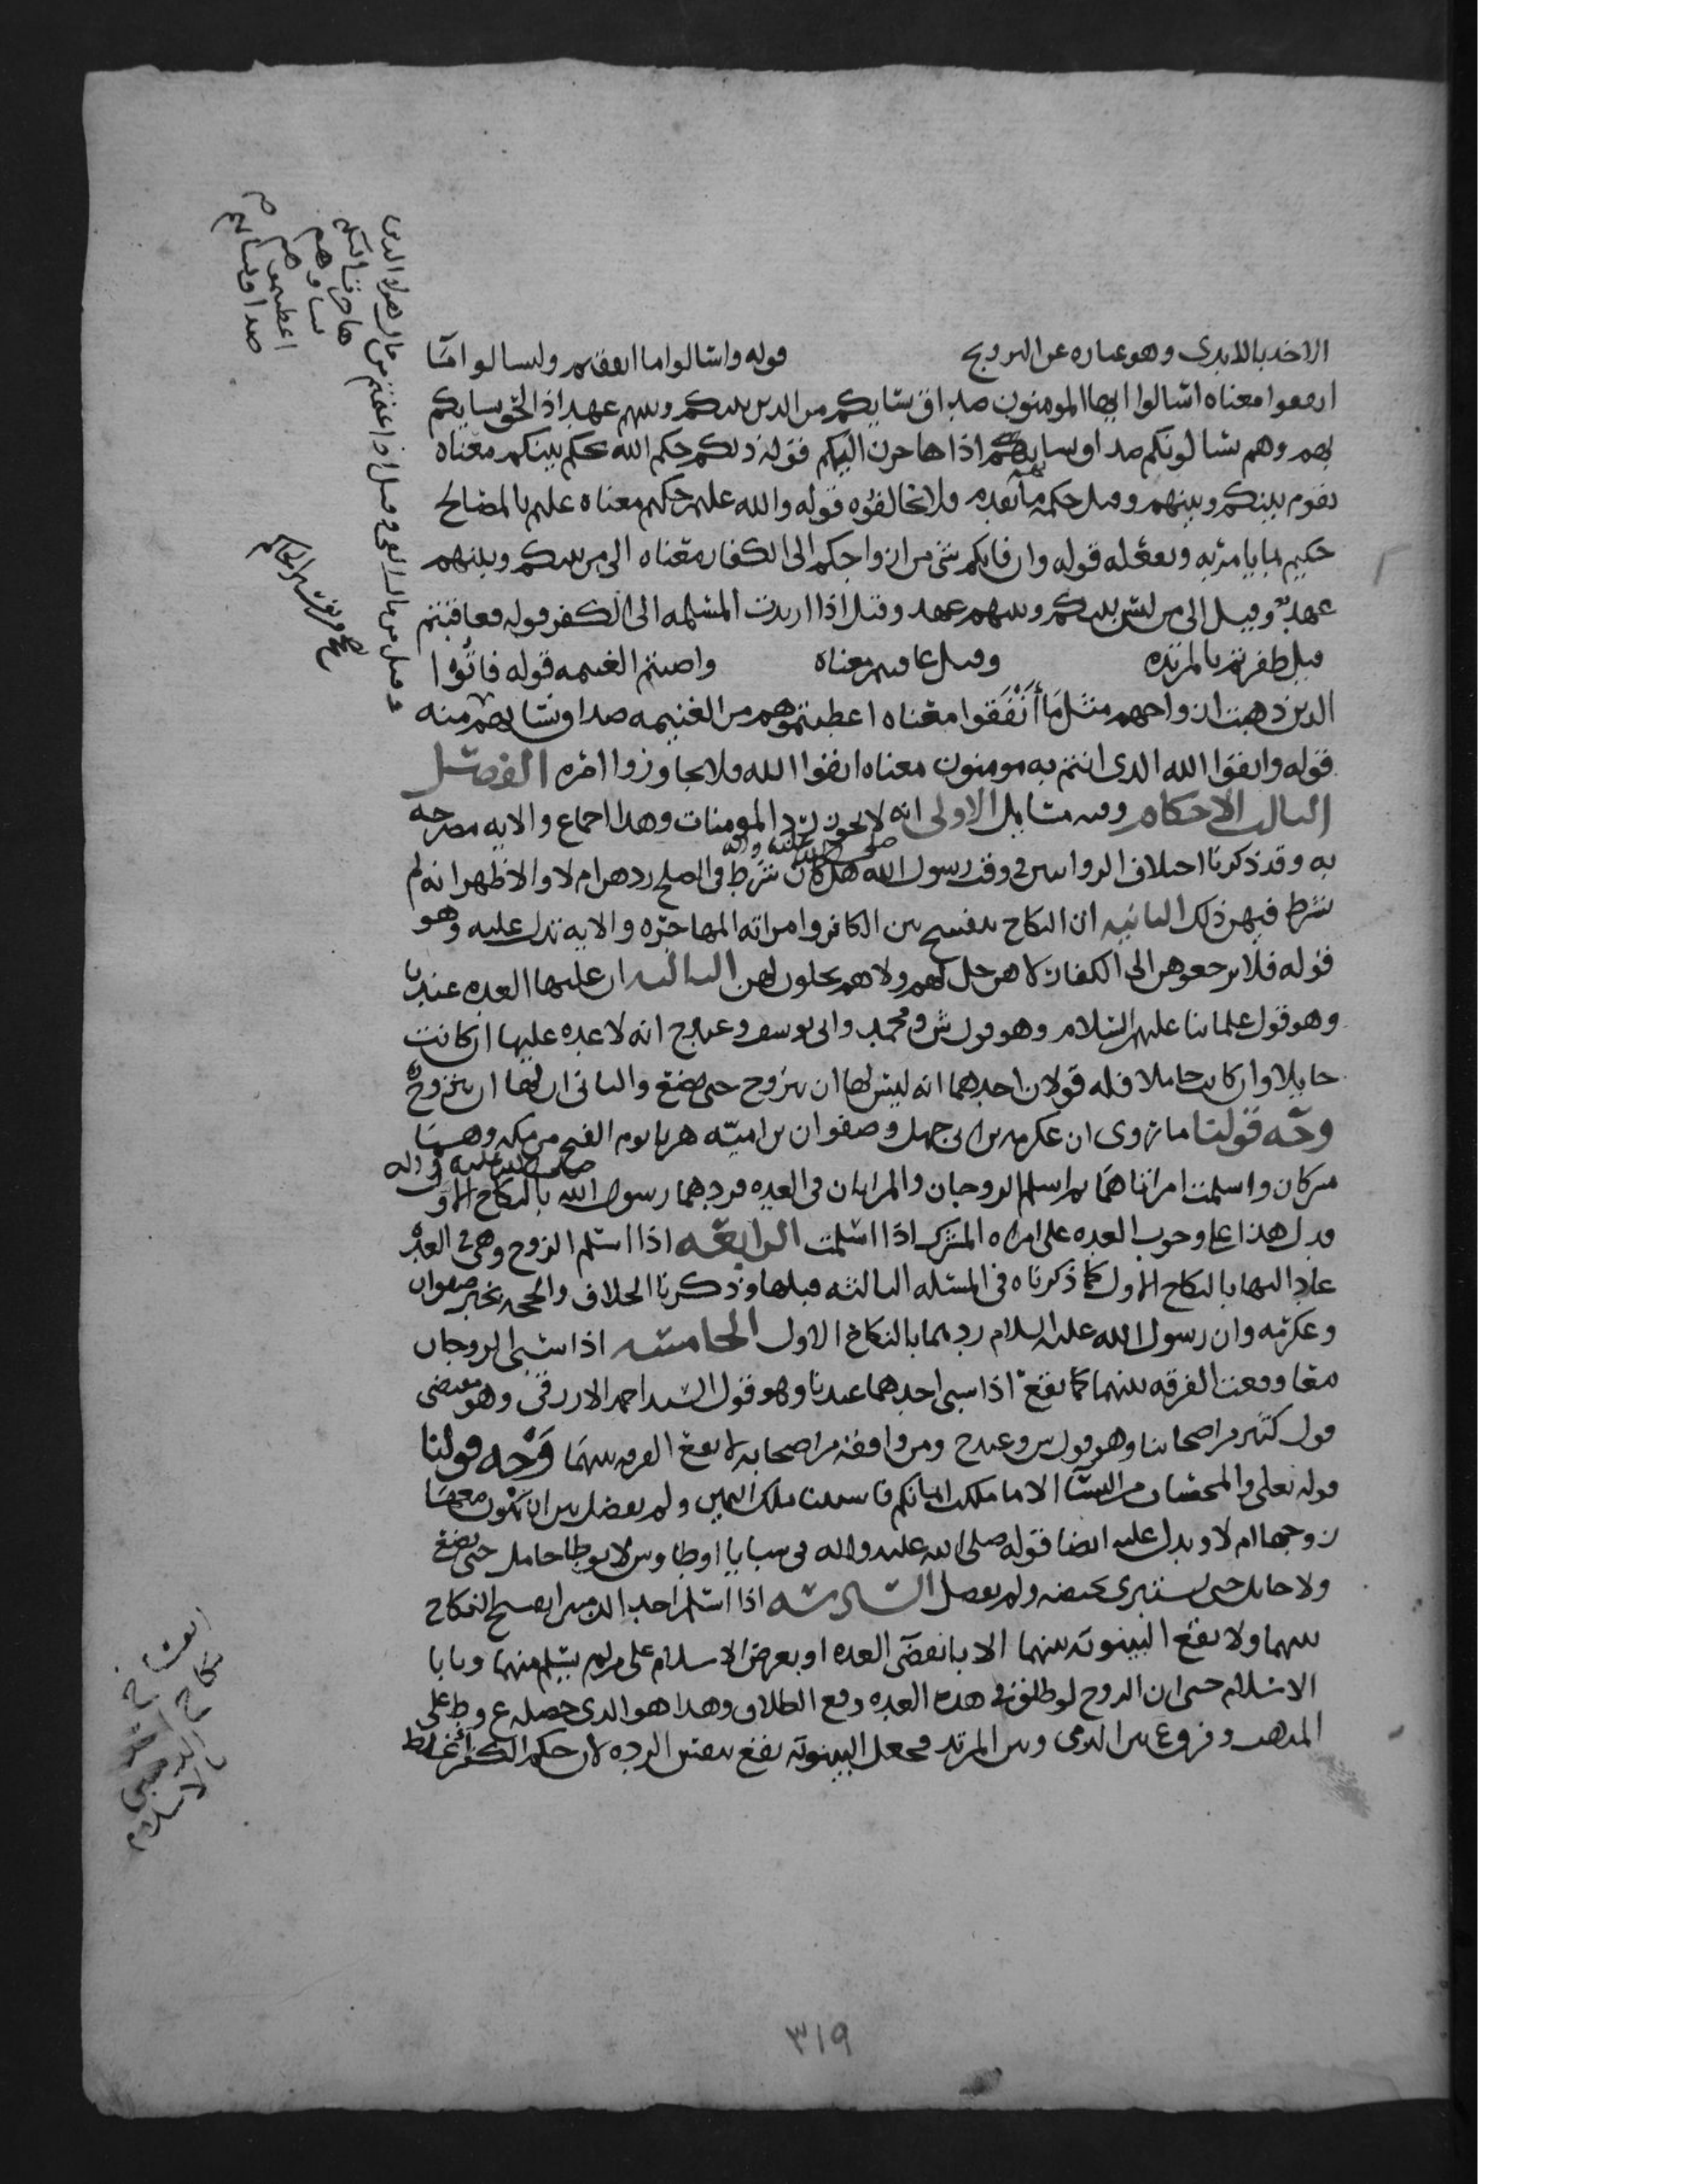 الاخذ بالايدي وهو عباره عن التزويج قوله واسالوا ما انفقتم وليسالوا ما
انفقوا معناه اسالوا ايها المومنون صداق نسايكم من الذين بينكم وبينهم عهد اذا لحق نسايكم
بهم وهم يسالونكم صداق نسايهم اذا هاجرن اليكم قوله ذلكم حكم الله يحكم بينكم معناه
يقوم بينكم وبينهم وقيل حكمه ما تقدم فلا تخالفوه قوله والله عليم حكيم معناه عليم بالمصالح
حكيم بما يامر به ويفعله قوله وان فاتكم شي من ازواجكم الى الكفار معناه الى من بينكم وبينهم
عهد وقيل الى من ليس بينكم وبينهم عهد وقيل اذا ارتدت المسلمه الى الكفر قوله فعاقبتم
قيل ظفرتم بالمرتده وقيل عاقبتم معناه واصبتم الغنيمه قوله فاتوا
الذين ذهبت ازواجهم مثل ما أَنْفَقوا معناه اعطيتموهم من الغنيمه صداق نسايهم منه
قوله واتقوا الله الذي انتم به مومنون معناه اتقوا الله ولا تجاوزوا امره الفصل
الثالث الاحكام وفيه مسايل الاولى انه لا يجوز رد المومنات وهذا اجماع والايه مصرحه
به وقد ذكرنا اختلاف الرواه في وقت رسول الله صلى الله عليه واله هل كان شرط في الصلح ردهن ام لا والاظهر انه لم
يشرط فيهن ذلك الثانيه ان النكاح ينفسخ بين الكافر وامراته المهاجره والايه تدل عليه وهو
قوله فلا ترجعوهن الى الكفار لا هن حل لهم ولا هم يحلون لهن الثالثه ان عليها العده عندنا
وهو قول علمائنا عليهم السلام وهو قول ش ومحمد وابي يوسف وعند ح انه لا عده عليها ان كانت
حايلا وان كانت حاملا فله قولان احدهما انه ليس لها ان تتزوج حتى تضع والثاني ان لها ان تتزوج
وجه قولنا ما روى ان عكرمه بن ابي جهل وصفوان بن اميه هربا يوم الفتح من مكه وهما
مشركان واسلمت امراتاهما ثم اسلم الزوجان والمراتان في العده فردهما رسول الله صلى الله عليه واله بالنكاح الاول
فدل هذا على وجوب العده على امراه المشرك اذا اسلمت الرابعه اذا اسلم الزوج وهي في العده
عاد اليها بالنكاح الاول كما ذكرناه في المسئله الثالثه قبلها وذكرنا الخلاف والحجه بخبر صفوان
وعكرمه وان رسول الله عليه السلام ردهما بالنكاح الاول الخامسه اذا سبي الزوجان
معا وقعت الفرقه بينهما كما تقع اذا سبي احدهما عندنا وهو قول السيد احمد الازرقي وهو مقتضى
قول كثير من اصحابنا وهو قول ش وعند ح ومن وافقه من اصحابه لا تقع الفرقه بينهما وَجْه قولنا
قوله تعلى والمحصنات من النسآ الا ما ملكت ايمانكم فاستثنا ملك اليمين ولم يفصل بين ان تكون معها
زوجها ام لا ويدل عليه ايضا قوله صلى الله عليه واله في سبايا اوطاوس لا يوطا حامل حتى تضع
ولا حايل حتى تستبرى بحيضه ولم يفصل السادسه اذا اسلم احد الذميين انفسخ النكاح
بينهما ولا تقع البينونه بينهما الا بانقضآ العده او بعرض الاسلام على من لم يسلم منهما ويابا
الاسلام حتى ان الزوج لو طلق في هذه العده وقع الطلاق وهذا هو الذي حصله ع وط على
المذهب وفرق ع بين الذمي وبين المرتد فجعل البينونه تقع بنفس الرده لان حكم الكفر اغلظ
وقيل من مال الفي وقيل اذا غنمتم من مال هولا الذين
هاجرتا اليكم
نساوهم
اعطيتموهم
صداق نسايهم
انفساخ
نكاح
الذميين
بالاسلام
٣١٩